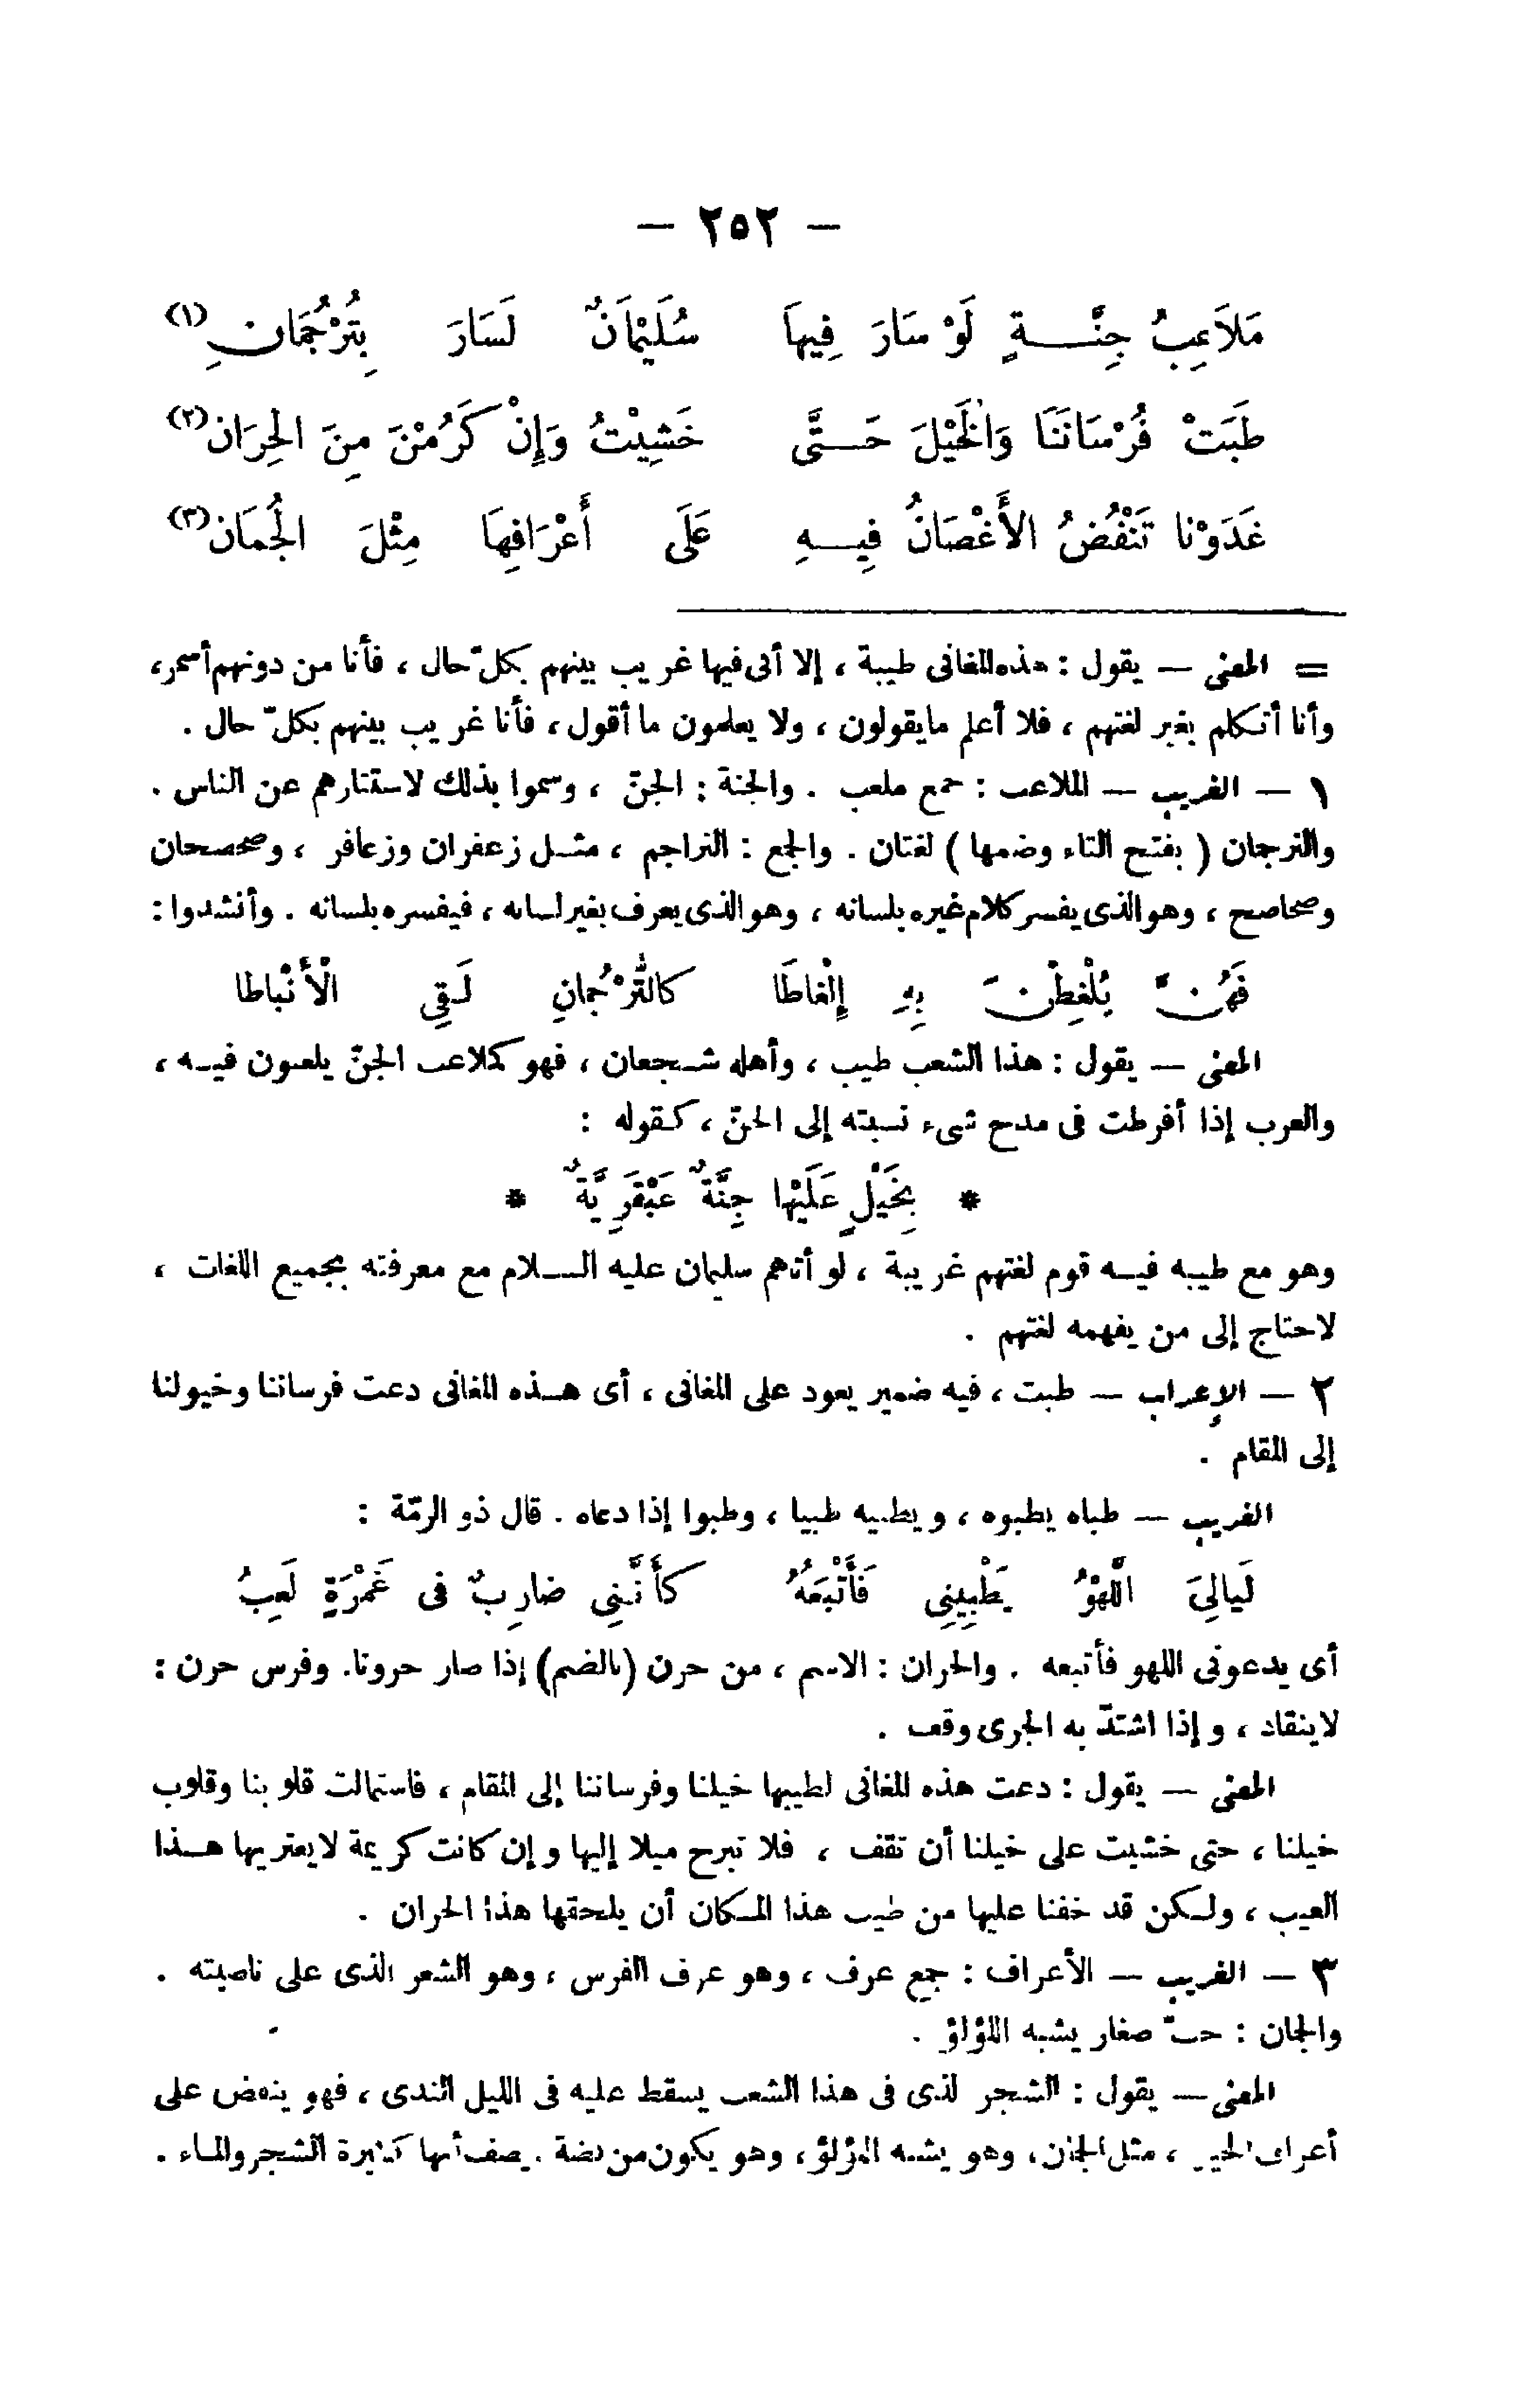 — ٢٥٢ —
مَلَاَعِبُ جِنَّةٍ لَوْ سَارَ فِيهَا سُلَيْمَانٌ لَسَارَ بِتُرْجُمَانِ (١)
طَبَتْ فُرْسَانَنَا وَالْخَيْلَ حَتَّى خَشِيْتُ وَإِنْ كَرُمْنَ مِنَ الْحِرَانِ (٢)
غَدَوْنا تَنْفُضُ الأَغْصَانُ فِيهِ عَلَى أَعْرَافِهَا مِثْلَ الْجُمَانِ (٣)
= المعنى — يقول : هذه المغانى طيبة ، إلا أنى فيها غريب بينهم بكلّ حال ، فأنا من دونهم أسمر،
وأنا أتكلم بغير لغتهم ، فلا أعلم مايقولون ، ولا يعلمون ما أقول ، فأنا غريب بينهم بكلّ حال .
١ — الغريب — الملاعب : جمع ملعب . والجنة : الجنّ ، وسموا بذلك لاستتارهم عن الناس .
والترجمان ( بفتح التاء وضمها ) لغتان . والجمع : التراجم ، مثل زعفران وزعافر ، وصحصحان
وصحاصح ، وهو الذى يفسر كلام غيره بلسانه ، وهو الذى يعرف بغير لسانه ، فيفسره بلسانه . وأنشدوا :
فَهُنَّ يُلْغِطْنَ بِهِ إِلْغاطَا كالتُّرْجُمانِ لَقِى الْأَنْباطا
المعنى — يقول : هذا الشعب طيب ، وأهله شجعان ، فهو كملاعب الجنّ يلعبون فيه ،
والعرب إذا أفرطت فى مدح شىء نسبته إلى الجنّ ، كقوله :
* بِخَيْلٍ عَلَيْها جِنَّةٌ عَبْقَرِيَّةٌ *
وهو مع طيبه فيه قوم لغتهم غريبة ، لو أتاهم سليمان عليه السلام مع معرفته بجميع اللغات ،
لاحتاج إلى من يفهمه لغتهم .
٢ — الإعراب — طبت ، فيه ضمير يعود على المغانى ، أى هذه المغانى دعت فرساننا وخيولنا
إلى المقام .
الغريب — طباه يطبوه ، ويطبيه طبيا ، وطبوا إذا دعاه . قال ذو الرمّة :
لَيالِىَ اللَّهْوُ يَطْبِيِنِى فَأَتْبَعُهُ كأنَّنِى ضارِبٌ فى غَمْرَةٍ لَعِبُ
أى يدعونى اللهو فأتبعه . والحران : الاسم ، من حرن (بالضم) إذا صار حرونا. وفرس حرن :
لاينقاد ، وإذا اشتدّ به الجرى وقف .
المعنى — يقول : دعت هذه المغانى لطيبها خيلنا وفرساننا إلى المقام ، فاستمالت قلوبنا وقلوب
خيلنا ، حتى خشيت على خيلنا أن تقف ، فلا تبرح ميلا إليها وإن كانت كريمة لايعتريها هذا
العيب ، ولكن قد خفنا عليها من طيب هذا المكان أن يلحقها هذا الحران .
٣ — الغريب — الأعراف : جمع عرف ، وهو عرف الفرس ، وهو الشعر الذى على ناصيته .
والجمان : حبّ صغار يشبه اللؤلؤ .
المعنى — يقول : الشجر لذى فى هذا الشعب يسقط عليه فى الليل الندى ، فهو ينفض على
أعراف الخيل ، مثل الجمان ، وهو يشبه اللؤلؤ ، وهو يكون من فضة . يصف أنها كثيرة الشجر والماء .